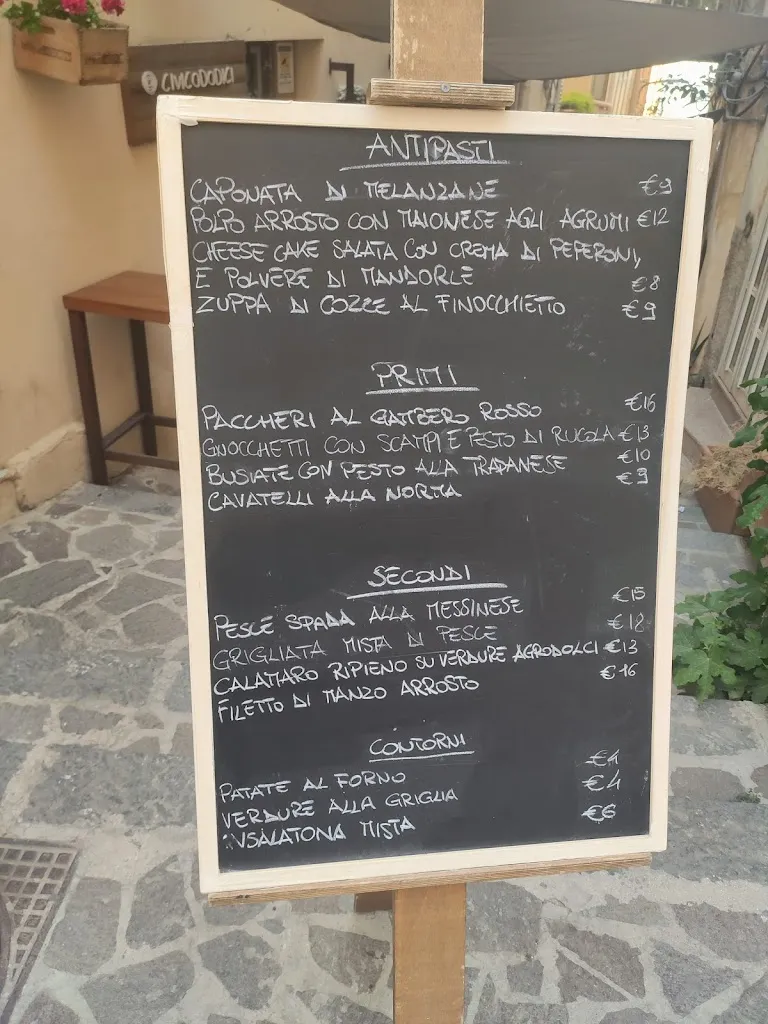 CIVICODODICI
ANTIPASTI
CAPONATA DI MELANZANE €9
POLPO ARROSTO CON MAIONESE AGLI AGRUMI €12
CHEESE CAKE SALATA CON CREMA DI PEPERONI,
E POLVERE DI MANDORLE €8
ZUPPA DI COZZE AL FINOCCHIETTO €9
PRIMI
PACCHERI AL GAMBERO ROSSO €16
GNOCCHETTI CON SCAMPI E PESTO DI RUCOLA €13
BUSIATE CON PESTO ALLA TRAPANESE €10
CAVATELLI ALLA NORMA €9
SECONDI
PESCE SPADA ALLA MESSINESE €15
GRIGLIATA MISTA DI PESCE €18
CALAMARO RIPIENO SU VERDURE AGRODOLCI €13
FILETTO DI MANZO ARROSTO €16
CONTORNI
PATATE AL FORNO €4
VERDURE ALLA GRIGLIA €4
INSALATONA MISTA €6